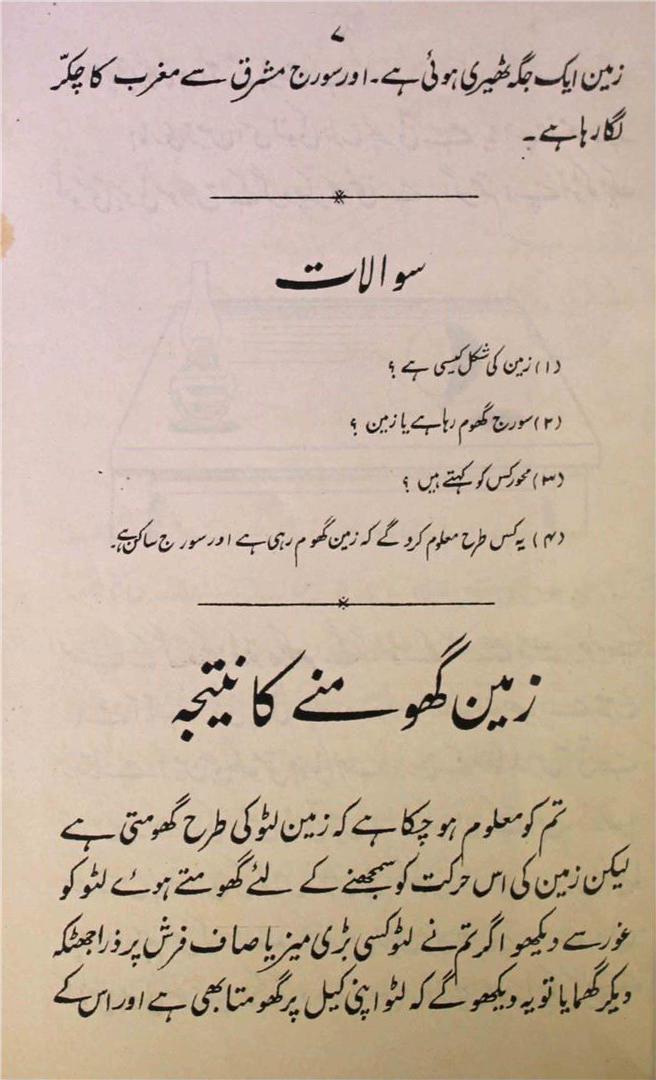 ۷
زمین ایک جگہ ٹھیری ہوئی ہے۔ اور سورج مشرق سے مغرب کا چکّر
لگا رہا ہے۔
سوالات
(۱) زمین کی شکل کیسی ہے ؟
(۲) سورج گھوم رہا ہے یا زمین ؟
(۳) محور کس کو کہتے ہیں ؟
(۴) یہ کس طرح معلوم کرو گے کہ زمین گھوم رہی ہے اور سورج ساکن ہے۔
زمین گھومنے کا نتیجہ
تم کو معلوم ہو چکا ہے کہ زمین لٹو کی طرح گھومتی ہے
لیکن زمین کی اس حرکت کو سمجھنے کے لئے گھومتے ہوئے لٹو کو
غور سے دیکھو اگر تم نے لٹو کسی بڑی میز یا صاف فرش پر ذرا جھٹکہ
دیکر گھمایا تو یہ دیکھو گے کہ لٹو اپنی کیل پر گھومتا بھی ہے اور اس کے